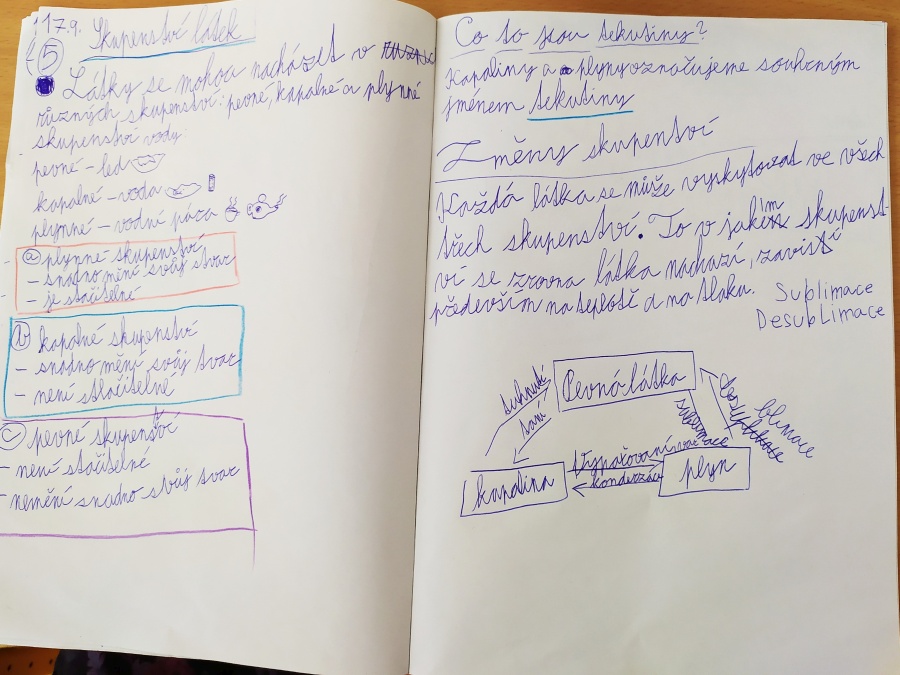 17.9. Skupenství látek
5
Látky se mohou nacházet v
různých skupenství: pevné, kapalné a plynné
skupenství vody:
pevné - led
kapalné - voda
plynné - vodní pára
a plynné skupenství
- snadno mění svůj tvar
- je stačitelné
b kapalné skupenství
- snadno mění svůj tvar
- není stlačitelné
c pevné skupenství
- není stačitelné
- nemění snadno svůj tvar
Co to jsou tekutiny?
Kapaliny a plyny označujeme souhrným
jménem tekutiny
Změny skupenství
Každá látka se může vyskytovat ve všech
třech skupenství. To v jakém skupenst-
ví se zrovna látka nachází, zavisí
především na teplotě a na tlaku.
Sublimace
Desublimace
Pevná látka
tuhnutí
tání
sublimace
desublimace
Vypařování
kondenzace
kapalina
plyn